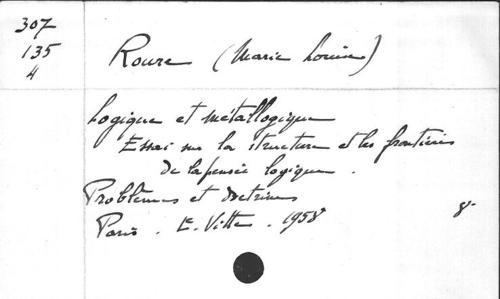 307
135
4
Roure (Marie Louise)
Logique et métallogique
Essai sur la structure et les frontières
de la pensée logique.
Problèmes et doctrines
Paris. E. Vitte. 1958
8°